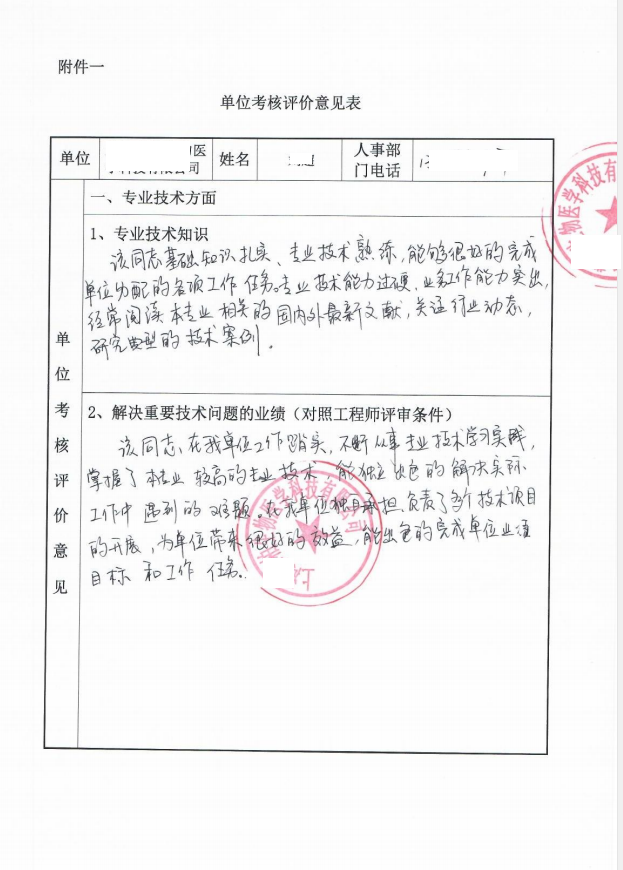 附件一
单位考核评价意见表
单位
医
司
姓名
人事部
门电话
一、专业技术方面
1、专业技术知识
该同志基础知识扎实、专业技术熟练,能够很好的完成
单位分配的各项工作任务。专业技术能力过硬,业务工作能力突出,
经常阅读本专业相关的国内外最新文献,关注行业动态,
研究典型的技术案例。
单位考核评价意见
2、解决重要技术问题的业绩(对照工程师评审条件)
该同志在我单位工作踏实,不断从事专业技术学习实践,
掌握了本专业较高的专业技术,能独立出色的解决实际
工作中遇到的难题。在我单位独自承担、负责了多个技术项目
的开展,为单位带来很好的效益,能出色的完成单位业绩
目标和工作任务。
物医学科技有
物医学科技有限公司